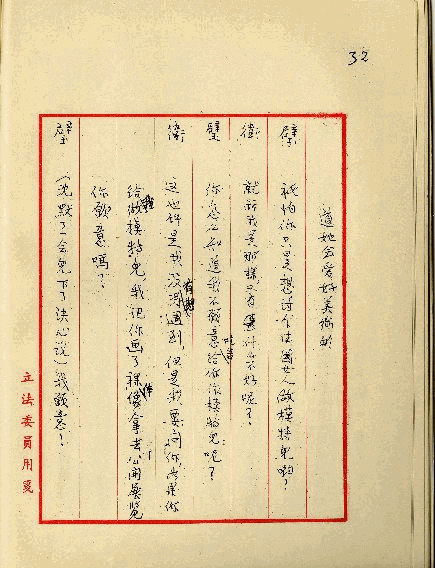 32
道她會愛好美術的
壁 祇怕你只是想討個法國女人做模特兒啊?
衛 就算我是那樣,又有甚什麼不好呢?
壁 你怎么知道我不願意給你作模特兒呢?
衛 這也許是我沒有想到,但是我要問你,如果你
給我做模特兒,我把你画了裸像拿去公開展覽
你願意嗎?
壁 (沈默了一會兒下了決心說)我願意!
立法委員用箋